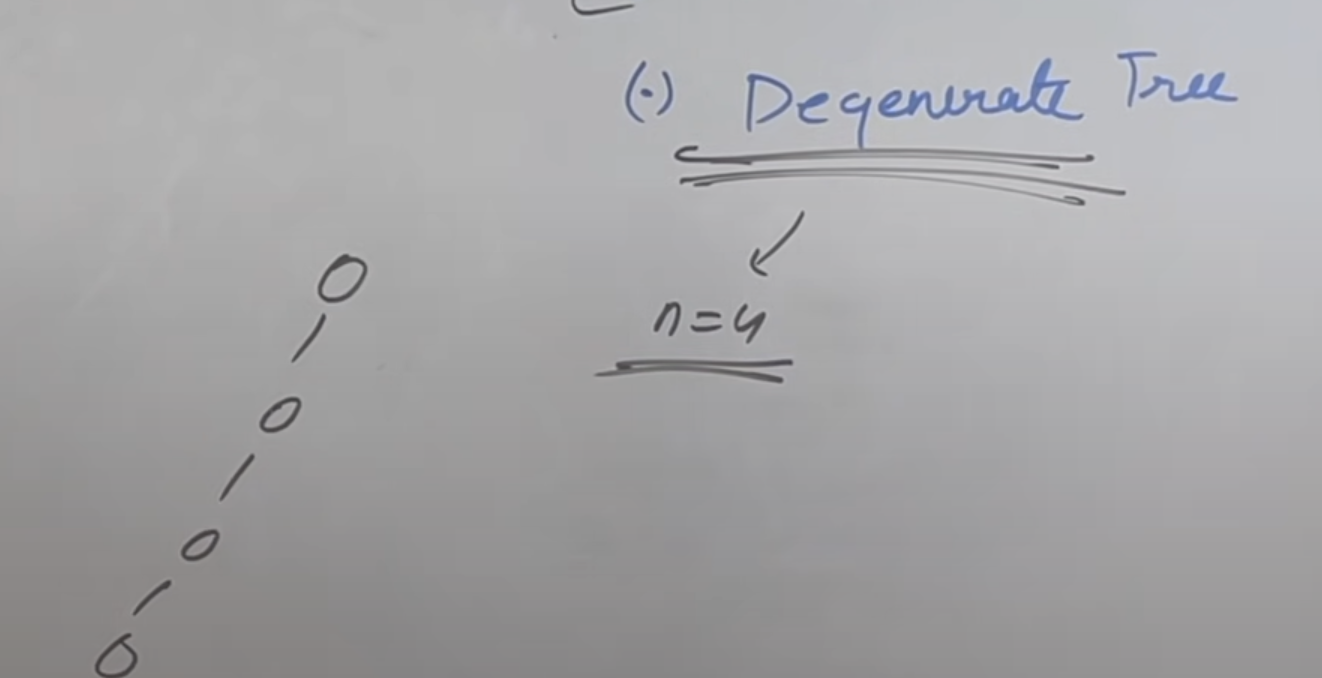 (·) Degenerate Tree
n=4